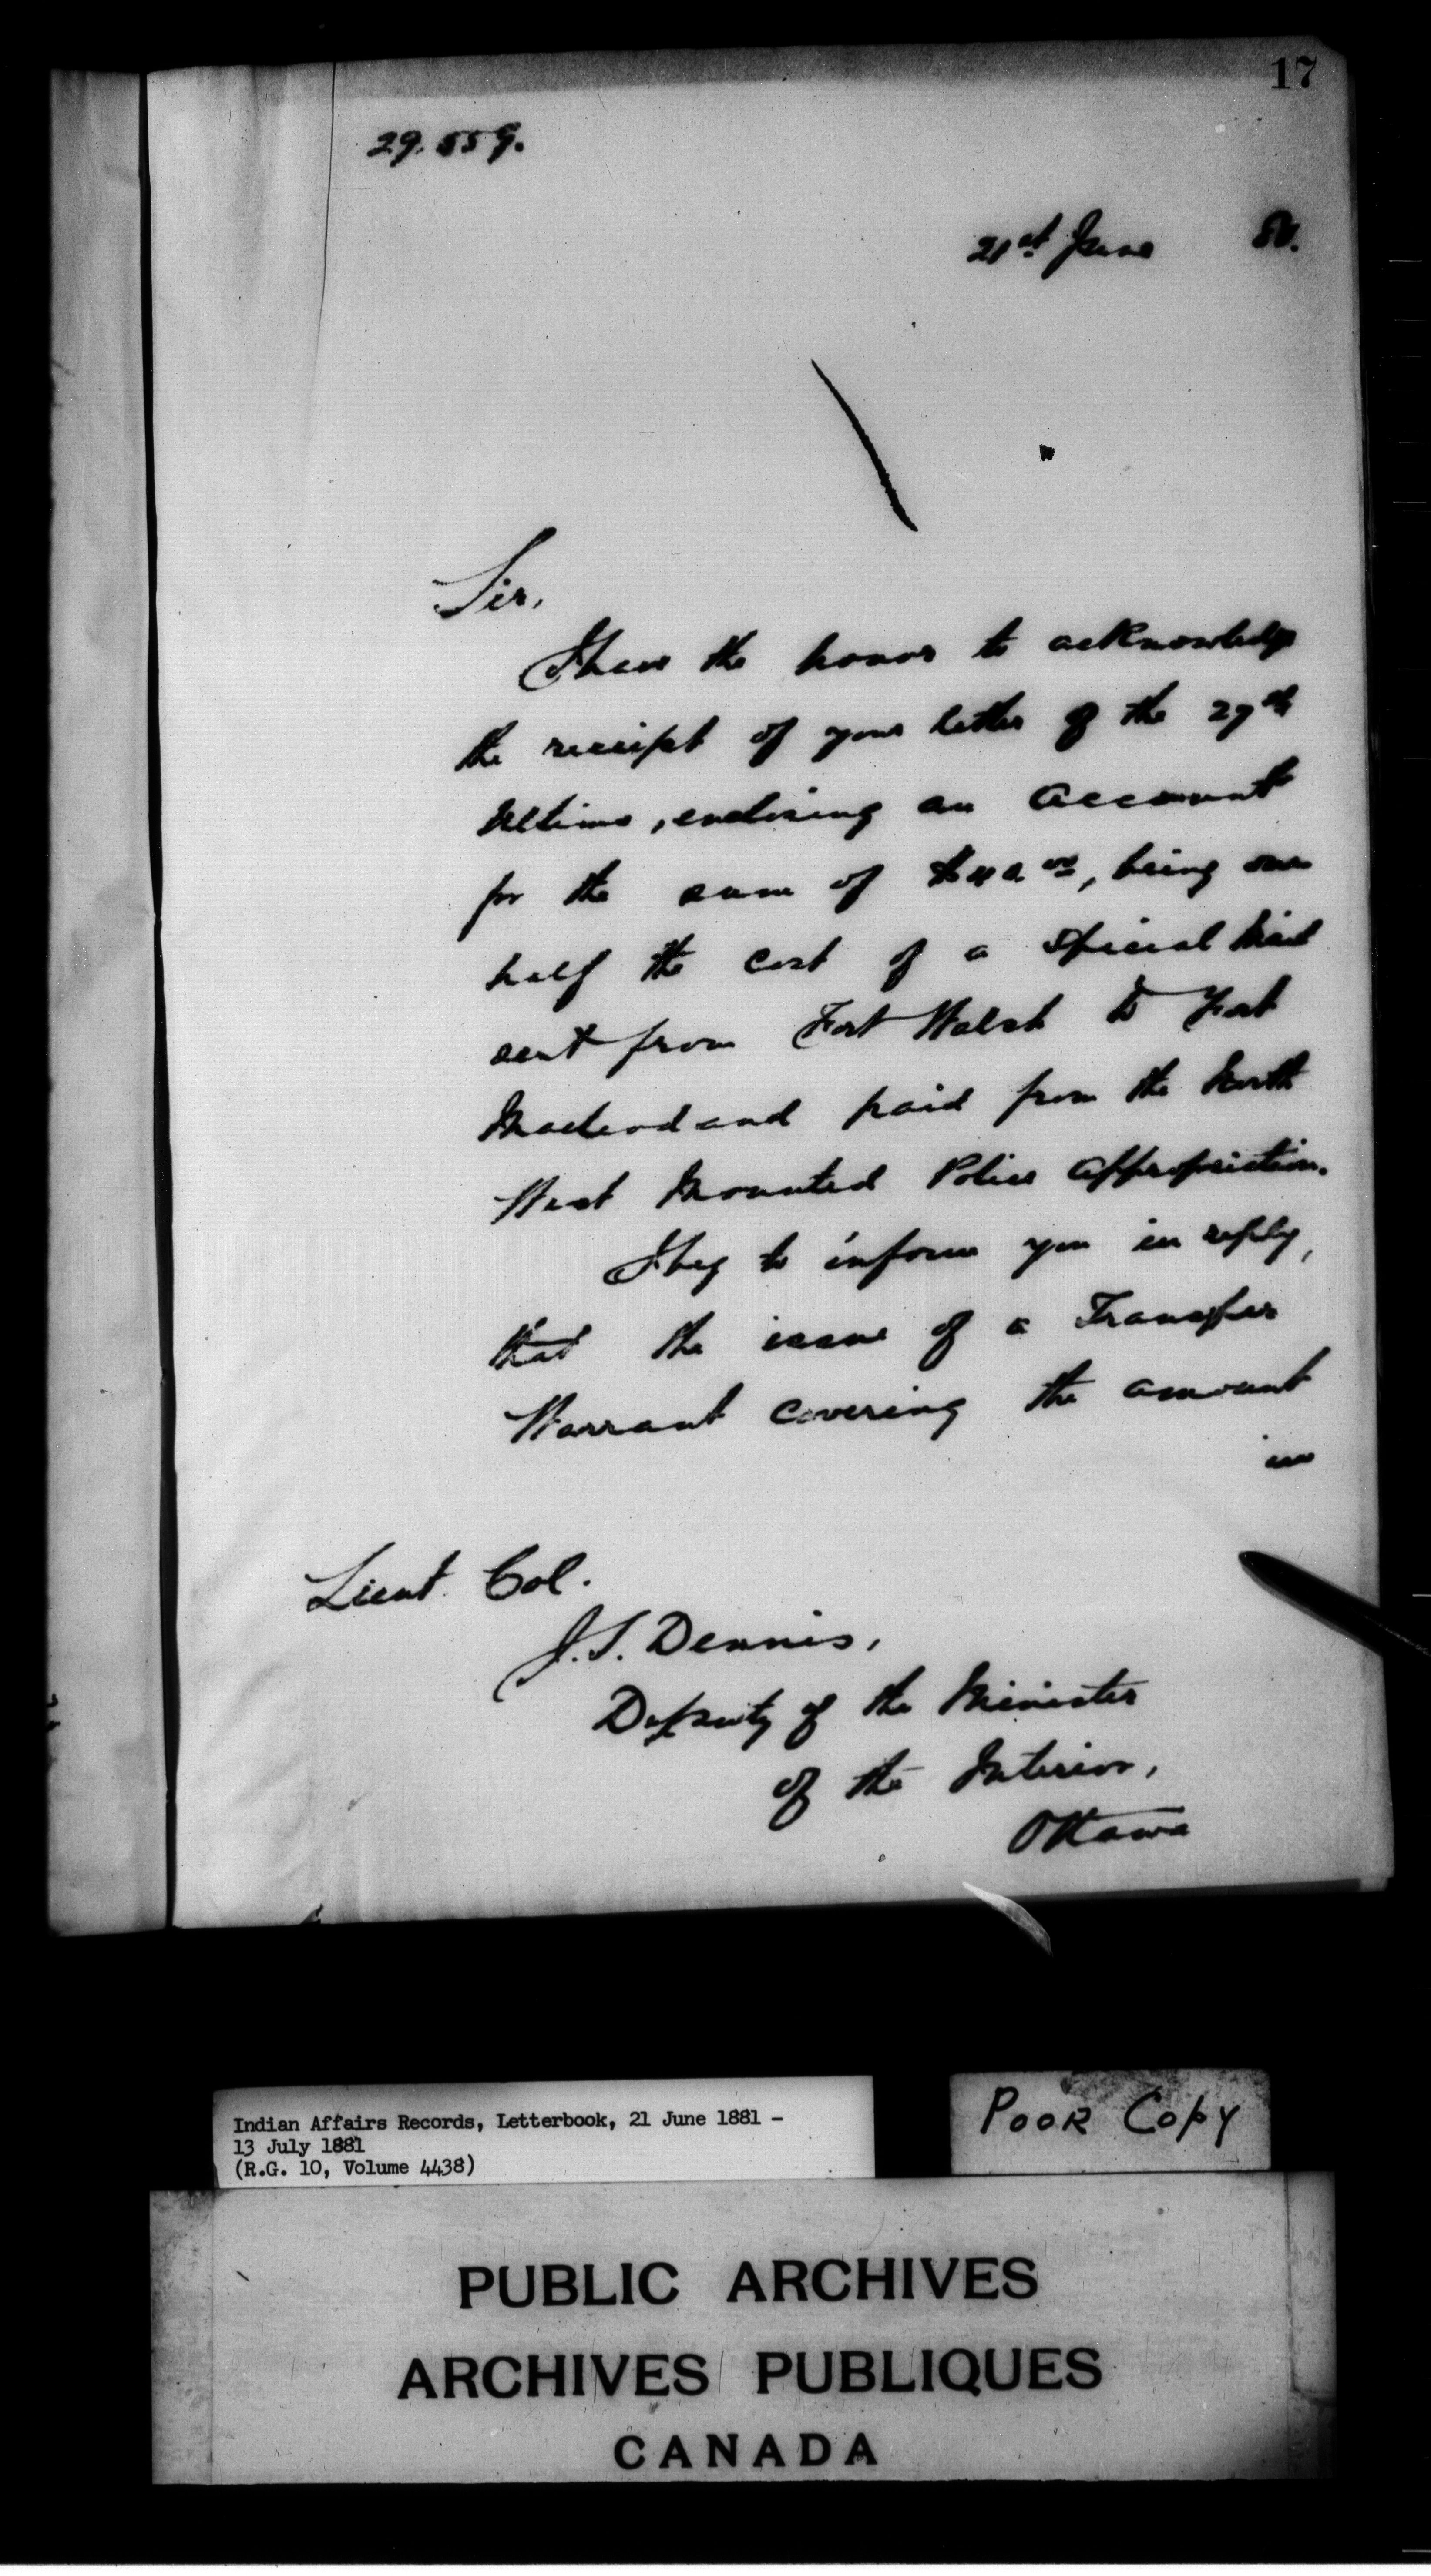 17
29.559.
21st June 81.
Sir,
I have the honor to acknowledge
the receipt of your letter of the 27th
Ultimo, enclosing an Account
for the sum of being one
half the cost of a special Mail
sent from Fort Walsh to Fort
Macleod and paid from the North
West Mounted Police appropriation.
I beg to inform you in reply,
that the issue of a Transfer
Warrant covering the amount
in
Lieut. Col.
J.S. Dennis,
Deputy of the Minister
of the Interior,
Ottawa
Indian Affairs Records, Letterbook, 21 June 1881 -
13 July 1881
(R.G. 10, Volume 4438)
POOR COPY
PUBLIC ARCHIVES
ARCHIVES PUBLIQUES
CANADA